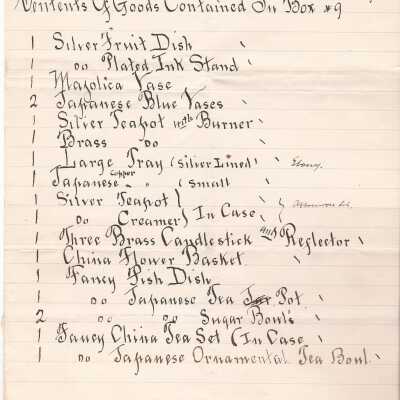 Contents Of Goods Contained In Box #9
1 Silver Fruit Dish \
1 do Plated Ink Stand \
1 Majolica Vase
2 Japanese Blue Vases
1 Silver Teapot with Burner \
1 Brass do \
1 Large Tray (Silver Lined) \ Ebony.
1 Japanese Copper " (Small \
1 Silver Teapot }
do Creamer } In Case \
1 Three Brass Candlestick and Reflector \
1 China Flower Basket \
1 Fancy Fish Dish
1 do Japanese Tea Pot \
2 do do Sugar Bowl's \
1 Fancy China Tea Set (In Case \
1 do Japanese Ornamental Tea Boul \